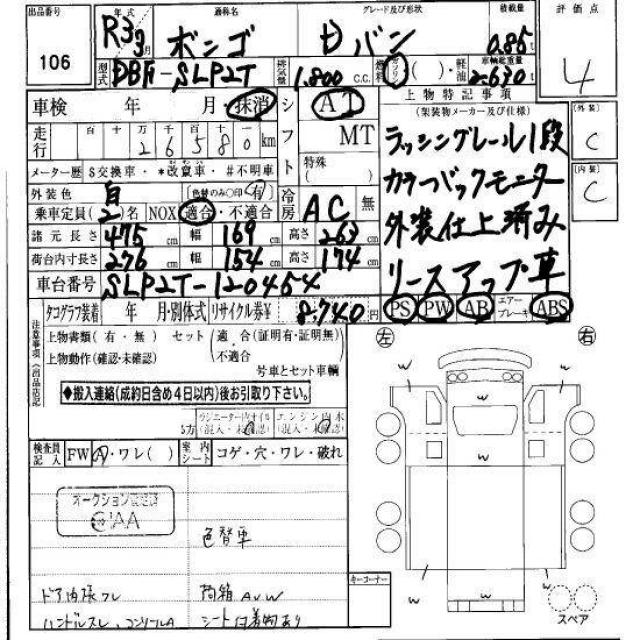 出品番号 106
年式 R3 3月
通称名 ボンゴ
グレード及び形状 Dバン
積載量 0.85t
評価点 4
型式 DBF-SLP2T
排気量 1,800 C.C.
燃料 ガソリン ( )・軽油
車輌総重量 2.630t
車検 年 月・抹消
シフト AT MT
特殊( )
走行 百 十 万 千 百 十 km
2 6 5 8 0
メーター歴 $交換車・*改竄車・#不明車
かいざん
上物特記事項
(架装物メーカー及び仕様)
ラッシングレール1段
カラーバックモニター
外装仕上済み
リースアップ車
(外装) C
(内装) C
外装色 白 (色替のみ○印 有)
冷房 AC 無
乗車定員(2)名 NOX 適合・不適合
諸元長さ 475cm 幅 169cm 高さ 263cm
荷台内寸長さ 276cm 幅 154cm 高さ 174cm
車台番号 SLP2T-120454
PS PW AB エアーブレーキ ABS
タコグラフ装着 年 月・別体式 リサイクル券¥ 8,740円
注意事項(出品店記
上物書類(有・無) セット(適合(証明有・証明無)
上物動作(確認・未確認) ・不適合
号車とセット車輌
◆搬入連絡(成約日含め4日以内)後お引取り下さい。
ラジエーター内オイル エンジン内水
(混入・未確認) (混入・未確認)
検査員記入 FW A・ワレ( ) 室内シート コゲ・穴・ワレ・破れ
オークション
CIAA
色替車
ドア内張スレ 荷箱AUW
ハンドルスレ、コンソールA シート付着物あり
左 右
w
w
w
w
w
w
w
キーコーナー
スペア